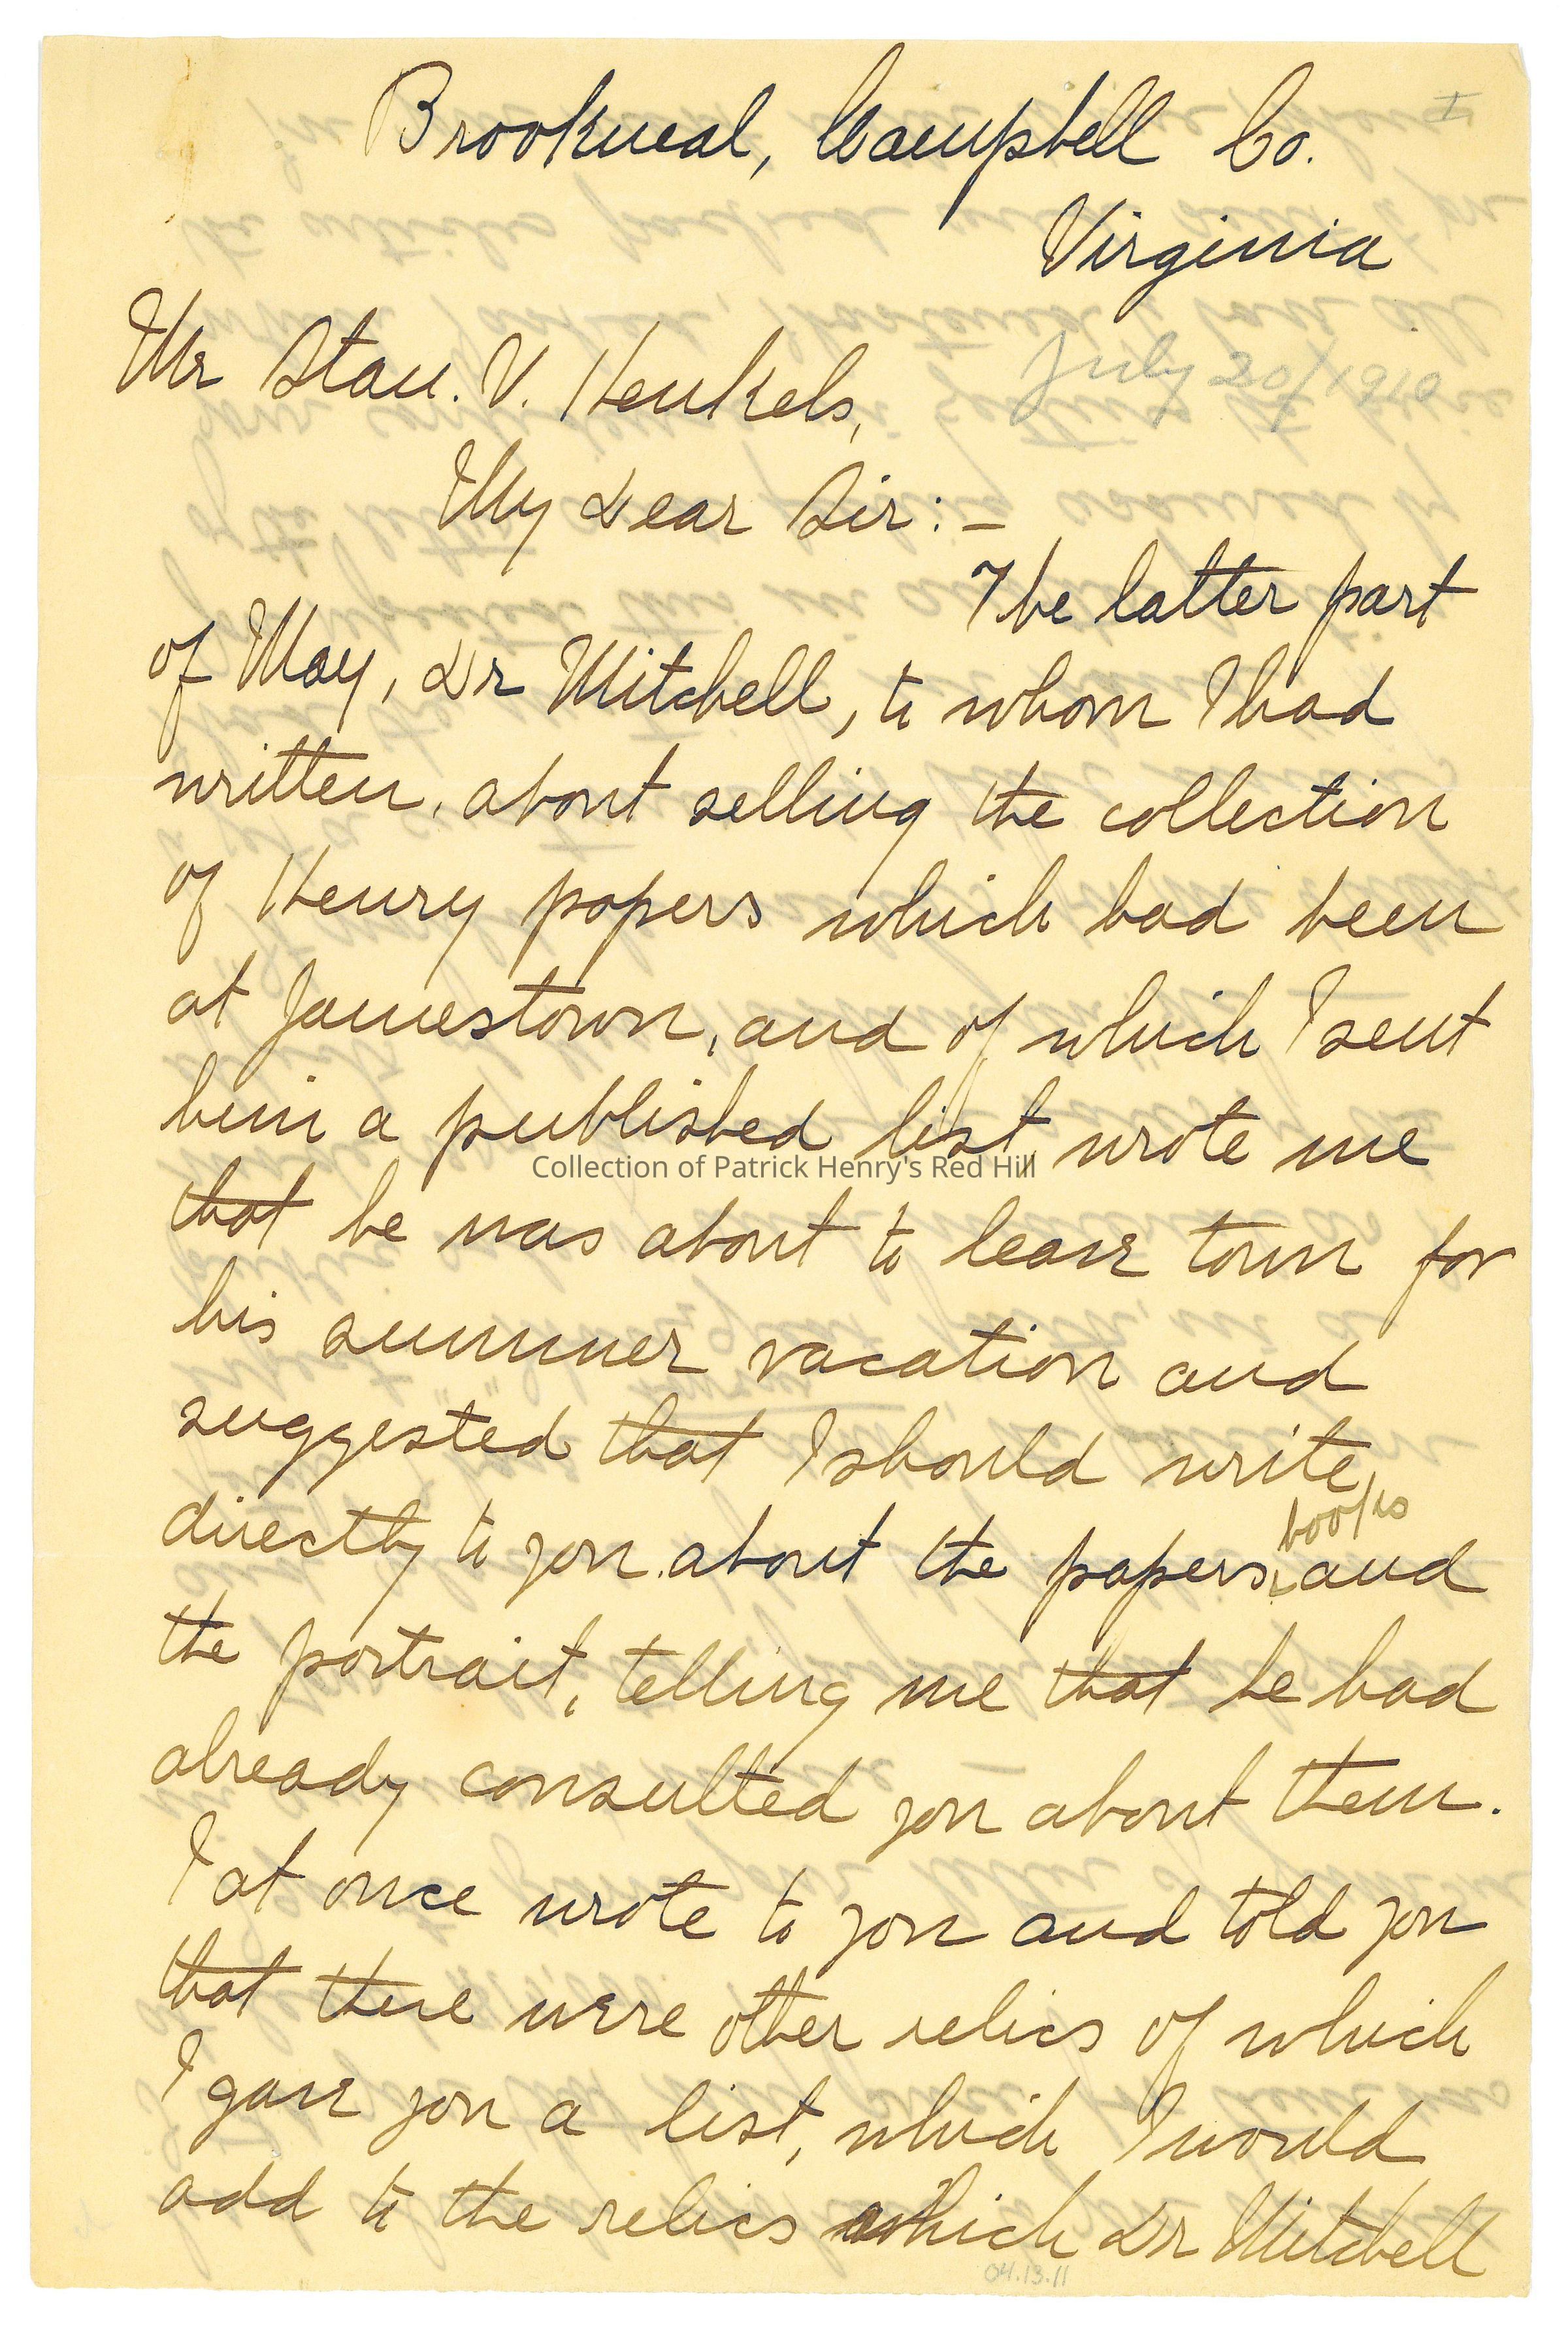 I
Brookneal, Campbell Co.
Virginia
July 20/1910
Mr Stan. V. Henkels,
My Dear Sir: –
The latter part
of May, Dr Mitchell, to whom I had
written, about selling the collection
of Henry papers which had been
at Jamestown, and of which I sent
him a published list wrote me
that he was about to leave town for
his summer vacation and
suggested that I should write,
directly to you about the papers, books and
the portrait, telling me that he had
already consulted you about them.
I at once wrote to you and told you
that there were other relics of which
I gave you a list, which I would
add to the relics which Dr Mitchell
04.13.11
Collection of Patrick Henry's Red Hill